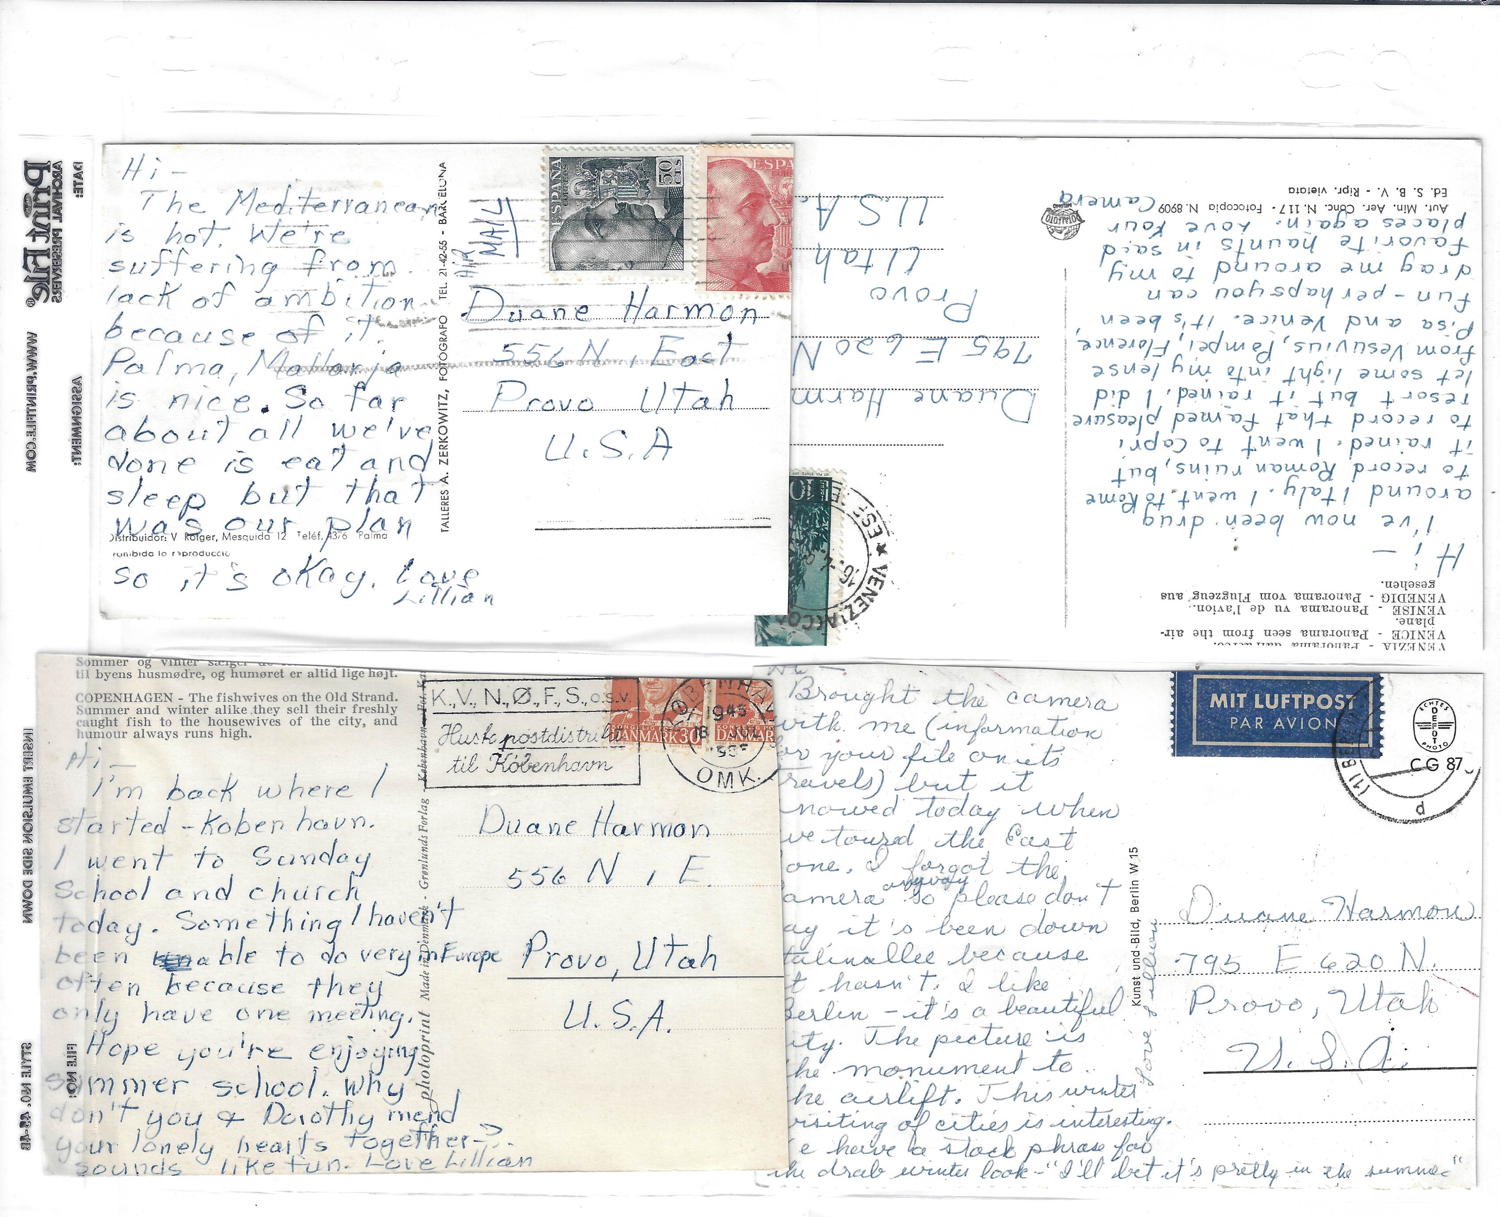 Hi -
The Mediterranean
is hot. We're
suffering from
lack of ambition
because of it.
Palma, Mallorja
is nice. So far
about all we've
done is eat and
sleep but that
was our plan
Distribuidor: V Rotger, Mesquida 12 Teléf. 4376 Palma
so it's okay. Love
Lillian
TALLERES A. ZERKOWITZ, FOTOGRAFO TEL. 21-42-55 - BARCELONA
AIR
MAIL
ESPAÑA
50 CTS
ESPA
Duane Harmon
556 N 1 East
Provo Utah
U.S.A
VENEZIA
VENICE - Panorama seen from the air-
plane.
VENISE - Panorama vu de l'avion.
VENEDIG - Panorama vom Flugzeug aus
gesehen.
Hi -
I've now been drug
around Italy. I went to Rome
to record Roman ruins, but
it rained. I went to Capri
to record that famed pleasure
resort but it rained. I did
let some light into my lense
from Vesuvius, Pompei, Florence,
Pisa and Venice. It's been
fun - perhaps you can
drag me around to my
favorite haunts in said
places again. Love Your
Camera
Aut. Min. Aer. Conc. N. 117 - Fotocopia N. 8909
Ed. S. B. V. - Ripr. vietata
Duane Harm
795 E 620 N
Provo
Utah
U.S.A.
10
VENEZIA
Sommer og vinter sælger de
til byens husmødre, og humøret er altid lige højt.
COPENHAGEN - The fishwives on the Old Strand.
Summer and winter alike they sell their freshly
caught fish to the housewives of the city, and
humour always runs high.
Hi -
I'm back where I
started - Kobenhavn.
I went to Sunday
School and church
today. Something I haven't
been able to do very in Europe
often because they
only have one meeting.
Hope you're enjoying
summer school. Why
don't you & Dorothy mend
your lonely hearts together-?
sounds like fun. Love Lillian
photoprint Made in Denmark - Grønlunds Forlag - København
K.V., N.Ø., F.S., o.s.v.
Husk postdistrikt
til København
DANMARK 30
KØBENHAVN
1945
18 JUL
OMK.
Duane Harmon
556 N 1 E.
Provo, Utah
U.S.A.
Brought the camera
with me (information
for your file on its
travels) but it
snowed today when
we toured the East
zone. I forgot the
camera anyway so please don't
say it's been down
Stalinallee because
it hasn't. I like
Berlin - it's a beautiful
city. The picture is
the monument to
the airlift. This winter
visiting of cities is interesting.
We have a stock phrase for
the drab winter look - "I'll bet it's pretty in the summer"
Love Lillian
Kunst und-Bild, Berlin W 15
MIT LUFTPOST
PAR AVION
ECHTES
FOTO
PHOTO
CG 87
Duane Harmon
795 E 620 N.
Provo, Utah
U.S.A.
DATE:
ARCHIVAL PRESERVERS
Print File®
WWW.PRINTFILE.COM
ASSIGNMENT:
INSERT EMULSION SIDE DOWN
FILE NO:
STYLE NO. 45-4B